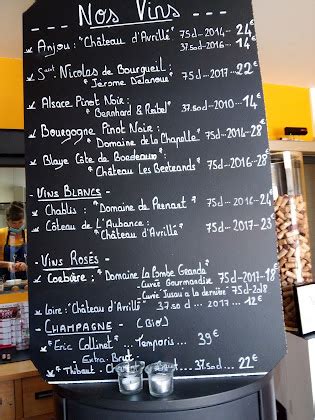 - Nos Vins -
Anjou: "Château d'Avrillé" 75cl-2014- 24€
37.5cl-2016- 14€
Saint Nicolas de Bourgueil:
"Jérome Delanoue" 75cl-2017- 22€
Alsace Pinot Noir:
"Bernhard & Reibel" 37.5cl-2010- 14€
Bourgogne Pinot Noir:
"Domaine de la Chapelle" 75cl-2014- 28€
Blaye Côte de Bordeaux:
"Château Les Bertrands" 75cl-2016- 28€
- Vins Blancs -
Chablis: "Domaine de Pernant" 75cl-2016- 29€
Côteau de L'Aubance:
"Château d'Avrillé" 75cl-2017- 23€
- Vins Rosés -
Corbière: "Domaine la Combe Grande
-Cuvée Gourmandise 75cl-2017-
-Cuvée Jusqu'à la dernière 75cl-2018
Loire: "Château d'Avrillé" 37.5cl-2017- 12€
- Champagne - (Bio)
"Eric Collinet" ... Temporis ... 39€
Extra-Brut
"Thibaut- 37.5cl... 22€